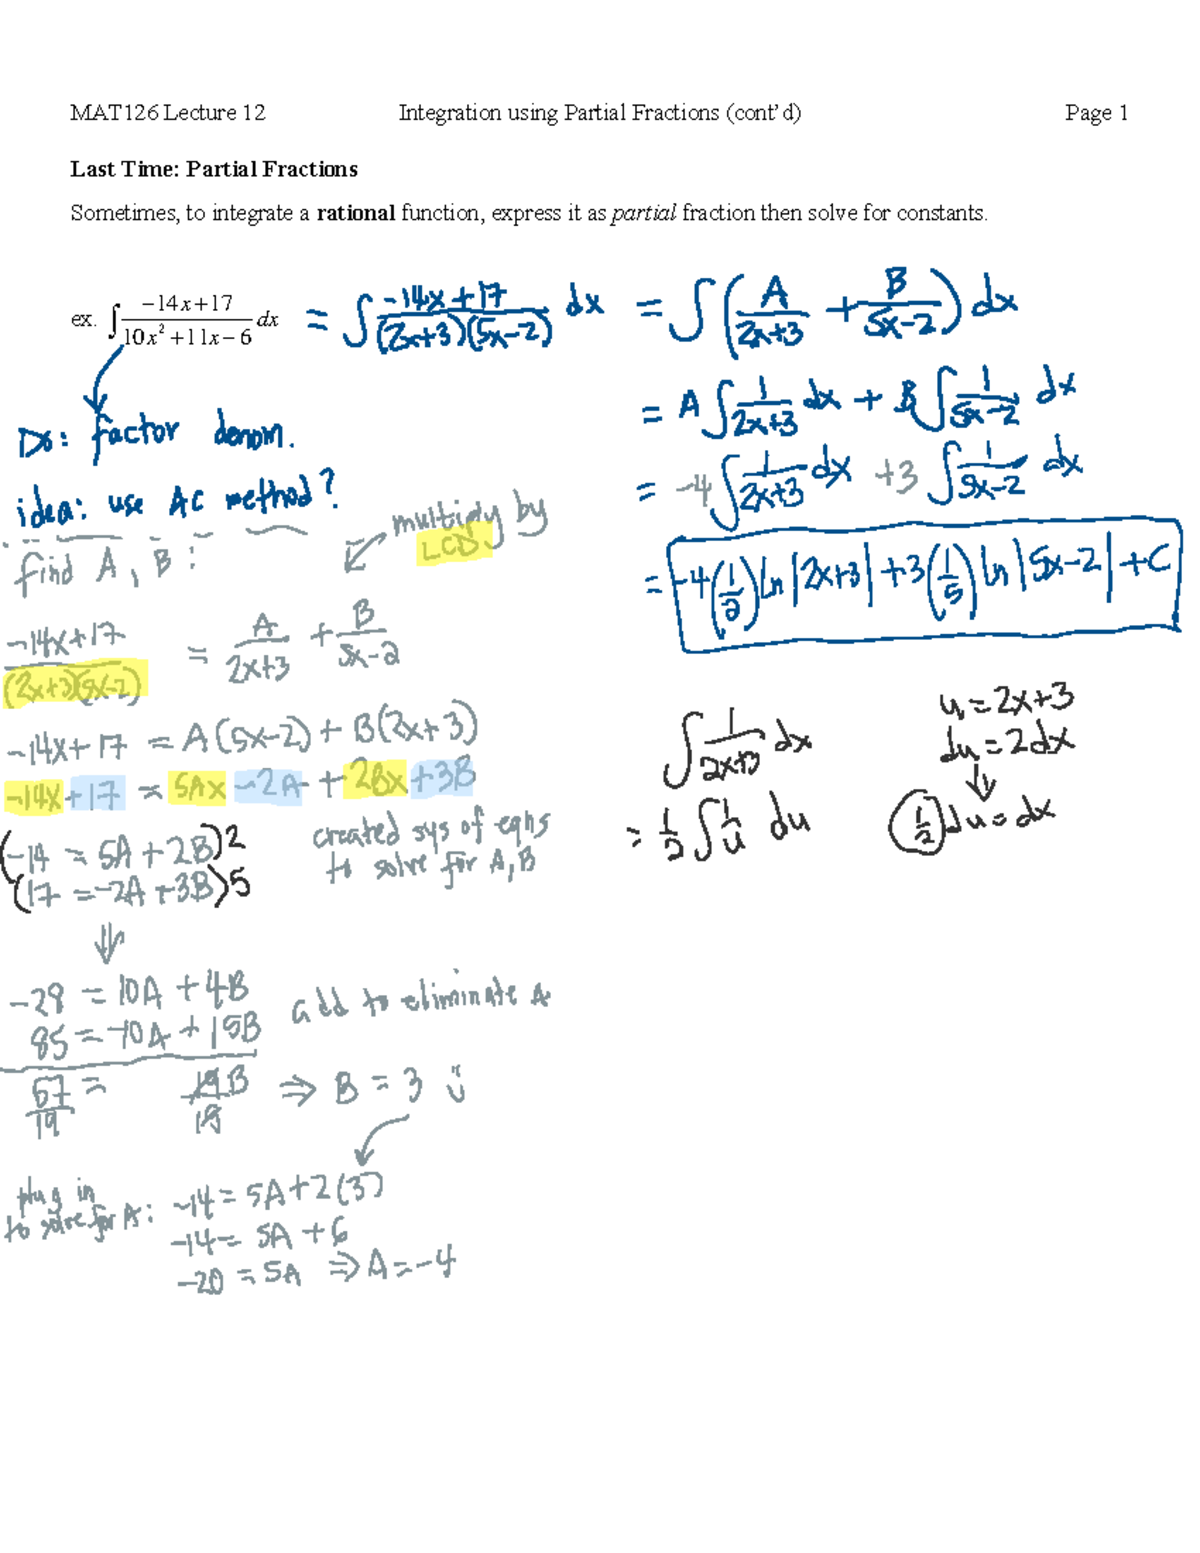 MAT126 Lecture 12 Integration using Partial Fractions (cont'd) Page 1
Last Time: Partial Fractions
Sometimes, to integrate a rational function, express it as partial fraction then solve for constants.
ex. ∫ (−14x+17)/(10x²+11x−6) dx = ∫ (-14x+17)/((2x+3)(5x-2)) dx = ∫ (A/(2x+3) + B/(5x-2)) dx
= A ∫ 1/(2x+3) dx + B ∫ 1/(5x-2) dx
= -4 ∫ 1/(2x+3) dx +3 ∫ 1/(5x-2) dx
= -4(1/2) ln|2x+3| +3(1/5) ln|5x-2| +C
Do: factor denom.
idea: use AC method?
find A, B:
multiply by
LCD
(-14x+17)/((2x+3)(5x-2)) = A/(2x+3) + B/(5x-2)
-14x+17 = A(5x-2) + B(2x+3)
-14x+17 = 5Ax -2A + 2Bx +3B
(-14 = 5A+2B)2
(17 = -2A+3B)5
created sys of eqns
to solve for A, B
⇓
-28 = 10A + 4B
85 = -10A + 15B
add to eliminate A
57/19 = 19B/19 ⇒ B = 3
plug in
to solve for A:
-14 = 5A+2(3)
-14 = 5A + 6
-20 = 5A ⇒ A = -4
∫ 1/(2x+3) dx
= 1/2 ∫ 1/u du
u = 2x+3
du = 2dx
⇓
1/2 du = dx